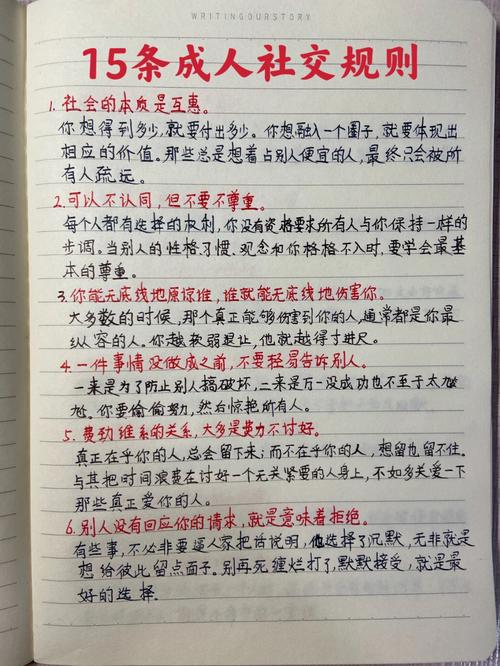 WRITINGOURSTORY
15条成人社交规则
1. 社会的本质是互惠。
你想得到多少,就要付出多少。你想融入一个圈子,就要体现出
相应的价值。那些总是想着占别人便宜的人,最终只会被所
有人疏远。
2.可以不认同,但不要不尊重。
每个人都有选择的权利,你没有资格要求所有人与你保持一样的
步调。当别人的性格、习惯、观念和你格格不入时,要学会最基
本的尊重。
3.你能无底线地原谅谁,谁就能无底线地伤害你。
大多数的时候,那个真正能够伤害到你的人,通常都是你最
纵容的人。你越软弱退让,他就越得寸进尺。
4.一件事情没做成之前,不要轻易告诉别人。
一来是为了防止别人搞破坏,二来是万一没成功也不至于太尴
尬。你要偷偷努力,然后惊艳所有人。
5.费劲维系的关系,大多是费力不讨好。
真正在乎你的人,总会留下来;而不在乎你的人,想留也留不住。
与其把时间浪费在讨好一个无关紧要的人身上,不如多关爱一下
那些真正爱你的人。
6.别人没有回应你的请求,就是意味着拒绝。
有些事,不必非要逼人家把话说明,他选择了沉默,无非就是
想给彼此留点面子。别再死缠烂打了,默默接受,就是最
好的选择.